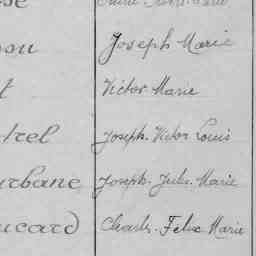 se
ou Joseph Marie
t Victor Marie
trel Joseph. Victor Louis
urbane Joseph. Jules. Marie
ucard Charles. Félix Marie